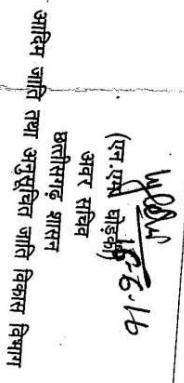 15-6-16
(एन.एस. घोड़की)
अवर सचिव
छत्तीसगढ़ शासन
आदिम जाति तथा अनुसूचित जाति विकास विभाग